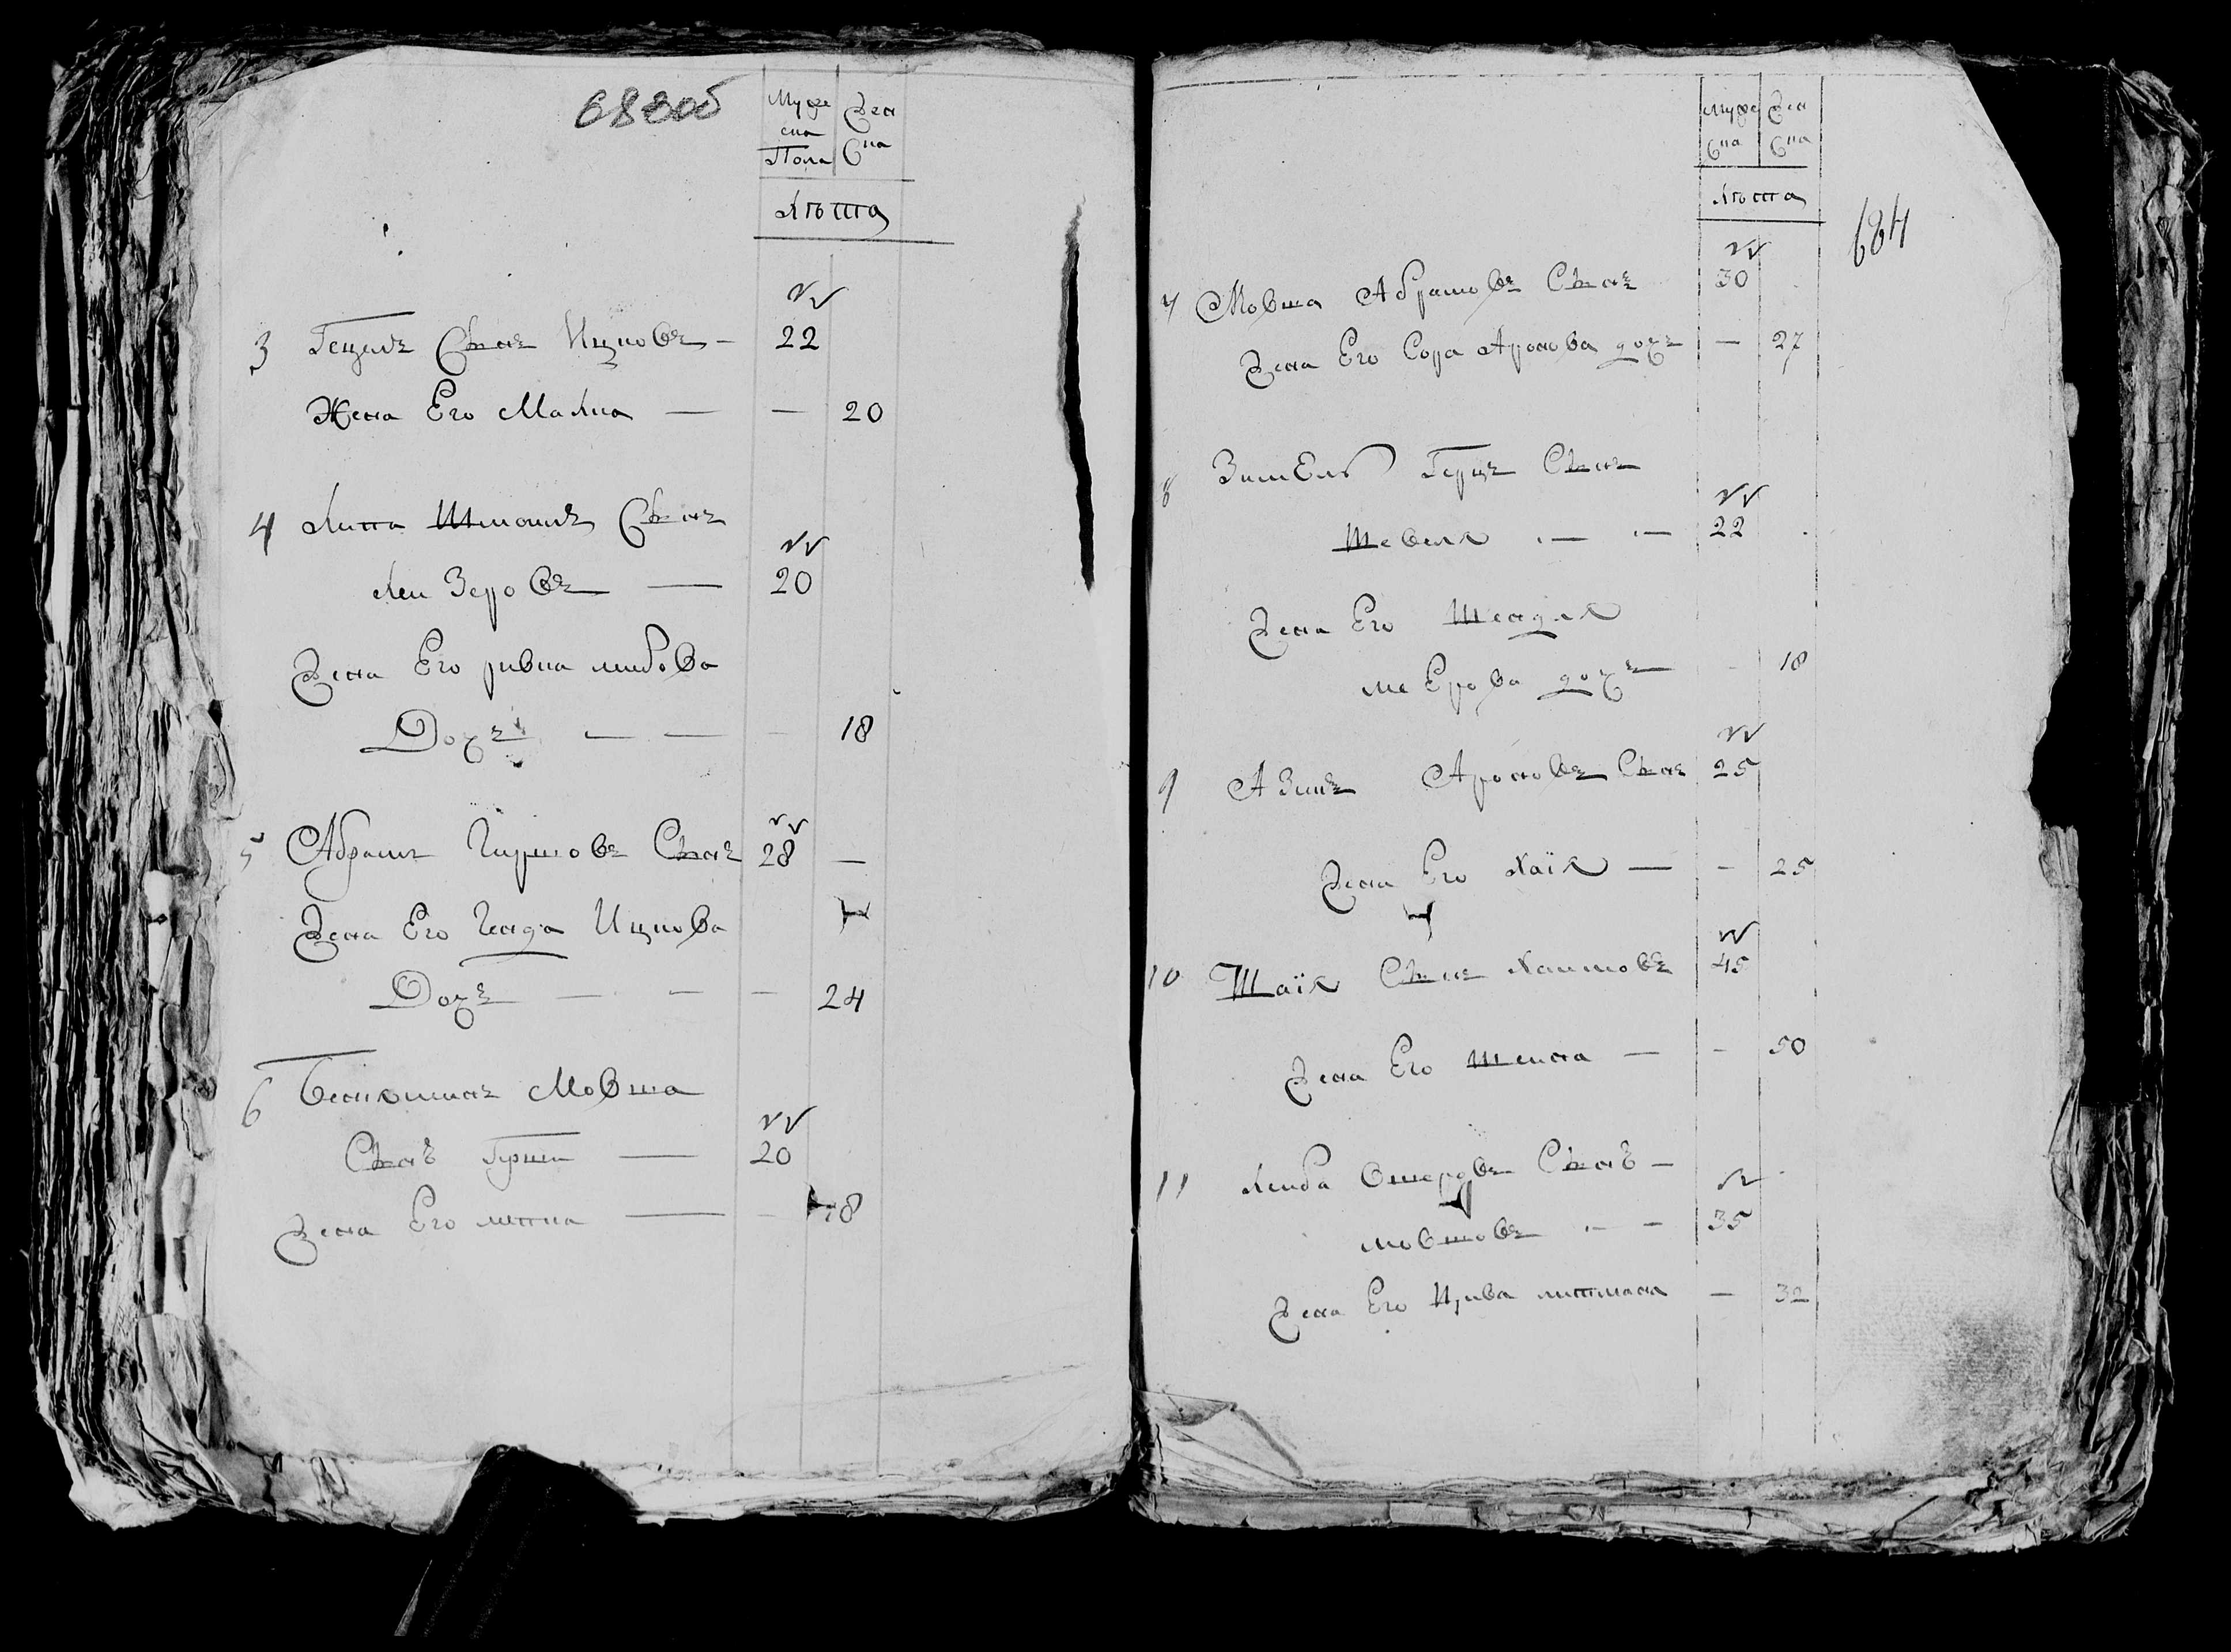 683об
Муже Жен
ска ска
Пола
Лѣта
3 Гецель Сынъ Ицковъ — 22
Жена Его Малка — — 20
4 Липа Сынъ
Лейзеровъ — 20
Жена Его ривка лейбова
Дочь — — — 18
5 Абрамъ Гиршовъ Сынъ 28 —
Жена Его Генда Ицкова
Дочь — — — 24
6 Беніоминъ Мовша
Сынъ Гершк — 20
Жена Его — — 18
Муже Жен
Ска Ска
Лѣта
684
7 Мовша Абрамовъ Сынъ 30
Жена Его Сора Аронова дочь — 27
8 Зимель Герцъ Сынъ
Шевеля — — 22
Жена Его Шендля
меЕрова дочь — 18
9 Ароновъ Сынъ 25
Жена Его Хаія — — 25
10 Шаія Сынъ Хаимовъ 45
Жена Его — — 50
11 Лейба Ошеровъ Сынъ —
мовшовъ — — 35
Жена Его Цива — 32